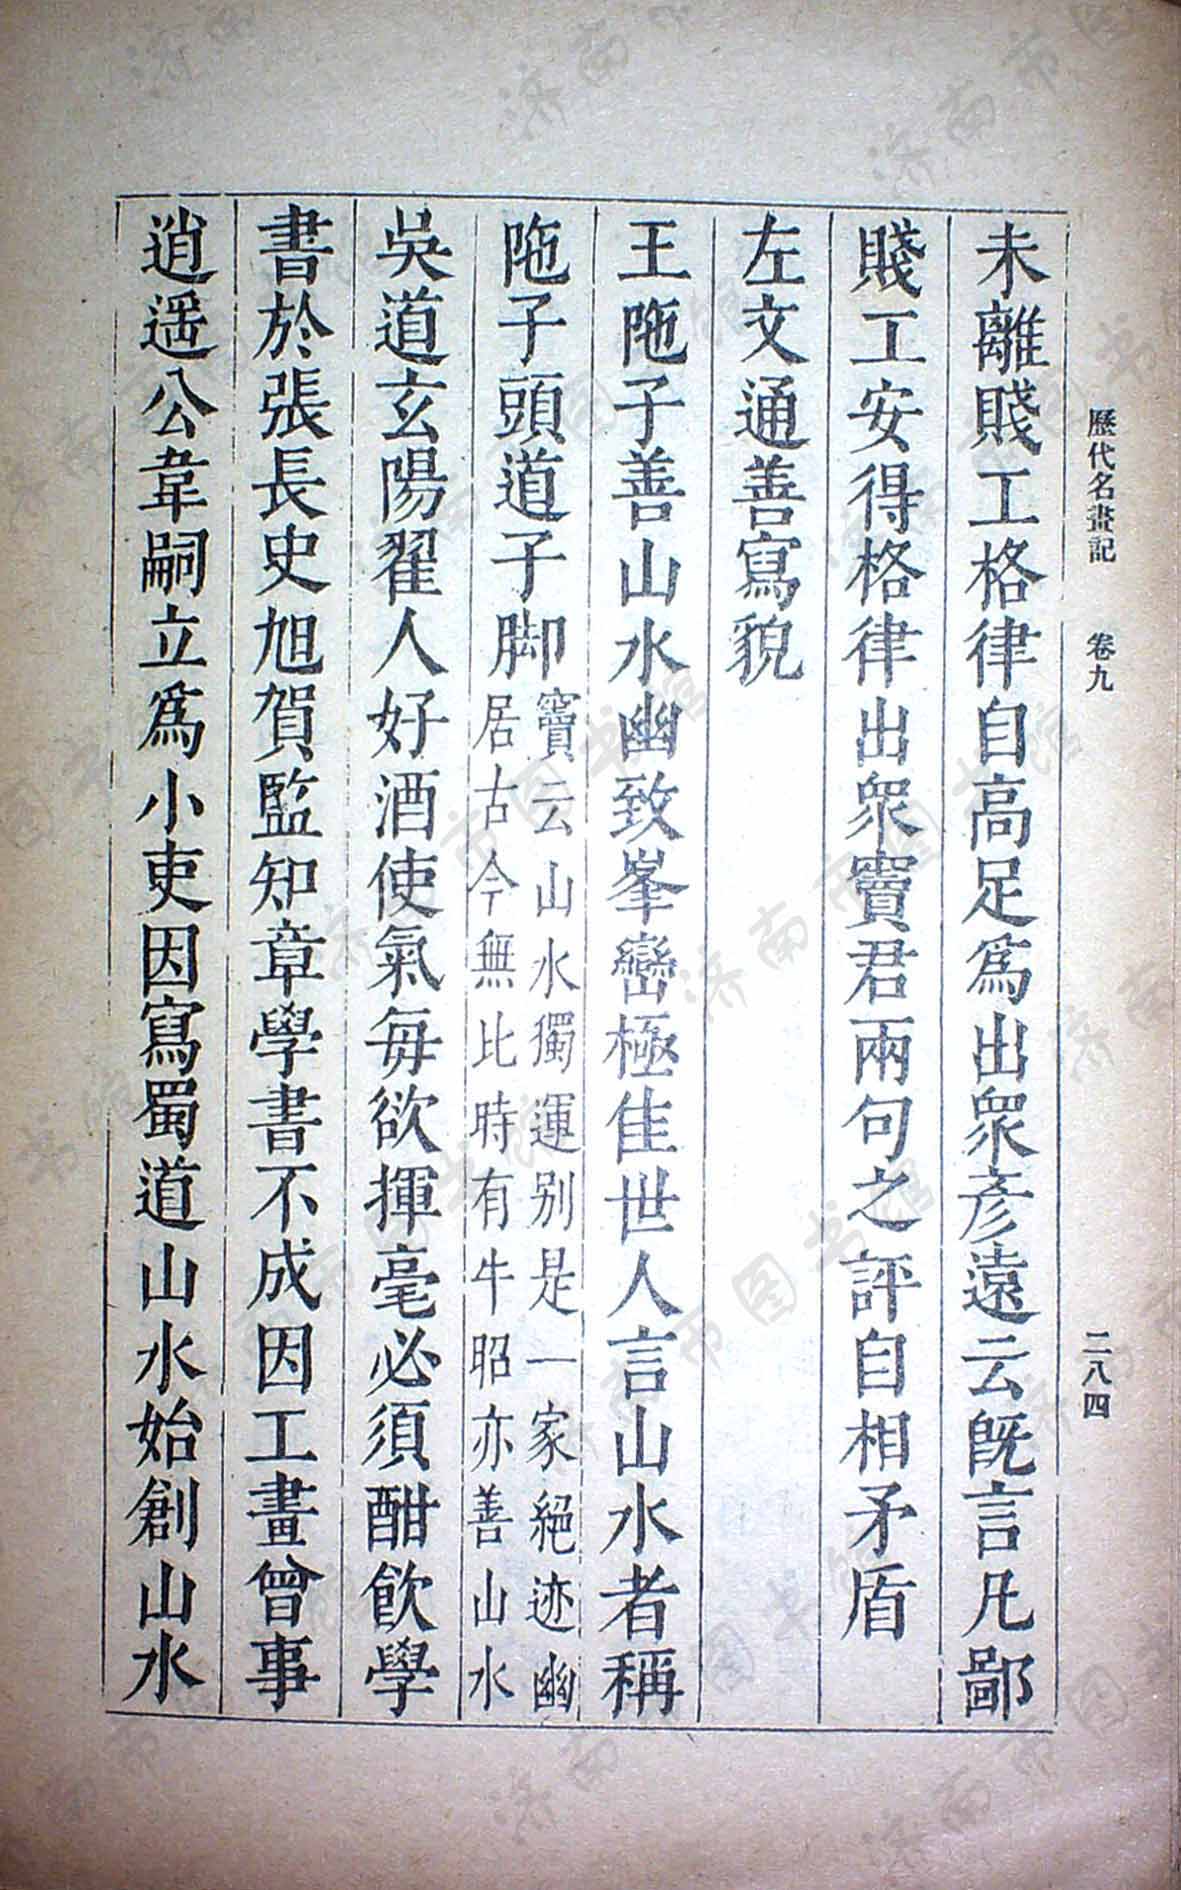 歷代名畫記 卷九 二八四
未離賤工格律自高足爲出衆彥遠云旣言凡鄙
賤工安得格律出衆竇君兩句之評自相矛盾
左文通善寫貌
王陁子善山水幽致峯巒極佳世人言山水者稱
陁子頭道子脚竇云山水獨運别是一家絕迹幽
居古今無比時有牛昭亦善山水
吳道玄陽翟人好酒使氣每欲揮毫必須酣飲學
書於張長史旭賀監知章學書不成因工畫曾事
逍遥公韋嗣立爲小吏因寫蜀道山水始創山水
济南市图书馆